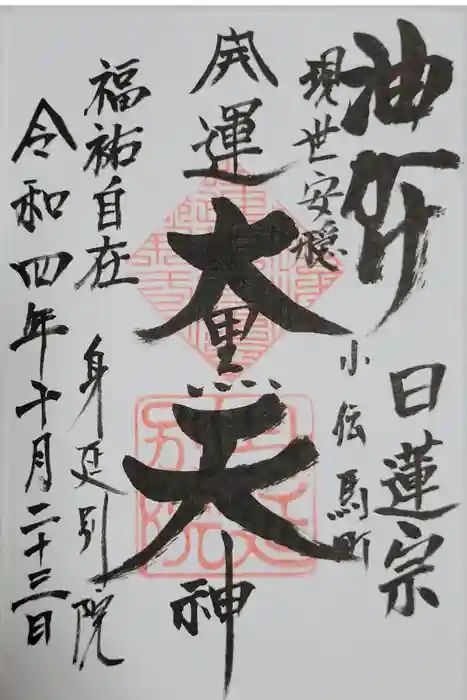 油かけ
日蓮宗
現世安穏
小伝馬町
開運
大黒天神
福祐自在
身延別院
令和四年十月二十三日
身延
別院